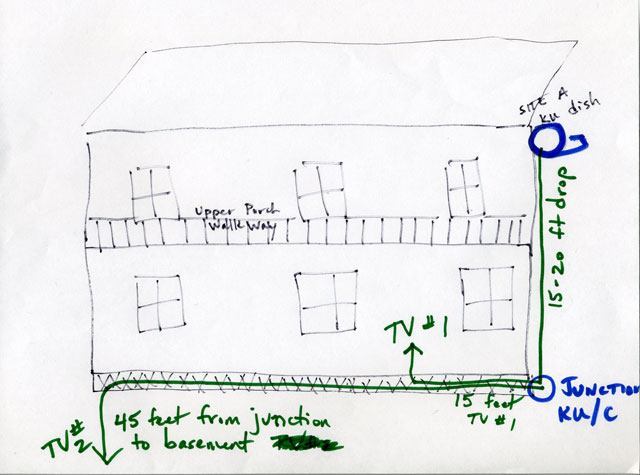 SITE A
KU dish
Upper Porch
Walk Way
15-20 ft drop
TV #1
JUNCTION
KU/C
15 feet
TV #1
45 feet from junction
to basement
TV #2